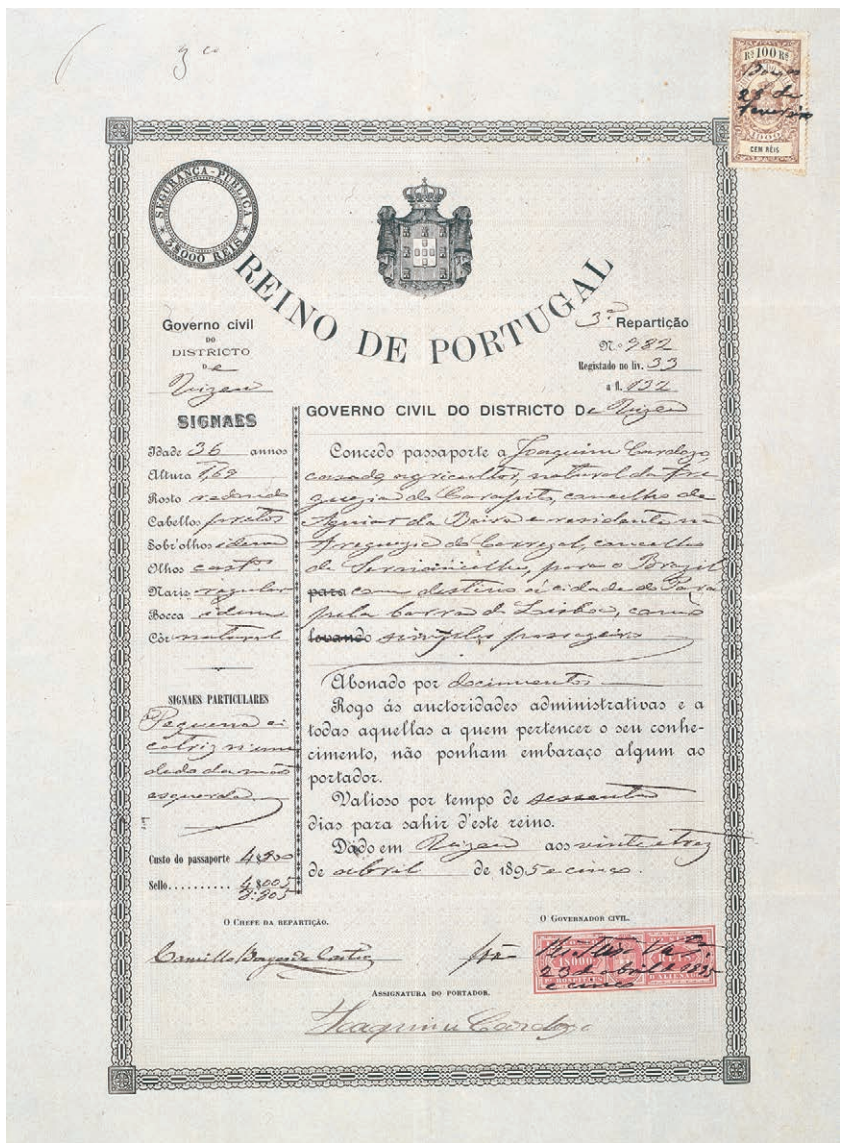 3ª
Rs 100 Rs
28 de
CEM RÉIS
SEGURANÇA-PUBLICA
3$000 REIS
REINO DE PORTUGAL
Governo civil
DO
DISTRICTO
De
Vizeu
3ª Repartição
N.º 982
Registado no liv. 33
a fl. 132
SIGNAES
Idade 36 annos
Altura 1,69
Rosto redondo
Cabellos pretos
Sobr'olhos idem
Olhos cast.
Nariz regular
Bocca idem
Côr natural
SIGNAES PARTICULARES
Pequena ci
catriz n'um
dedo da mão
esquerda
Custo do passaporte
Sello
GOVERNO CIVIL DO DISTRICTO De Vizeu
Concedo passaporte a Joaquim Cardozo,
casado, agricultor, natural da fre
guezia de Carapito, concelho de
Aguiar da Beira e residente na
freguezia do Carregal, concelho
de Sernancelhe, para o Brazil
para com destino á cidade do Pará
pela barra de Lisboa, como
levando simples passageiro
Abonado por documentos
Rogo ás auctoridades administrativas e a
todas aquellas a quem pertencer o seu conhe-
cimento, não ponham embaraço algum ao
portador.
Valioso por tempo de sessenta
dias para sahir d'este reino.
Dado em Vizeu aos vinte e trez
de abril de 1895 e cinco.
O CHEFE DA REPARTIÇÃO.
O GOVERNADOR CIVIL.
Camillo Borges de Castro
1$000 REIS
23 de abril de 1895
e cinco
ASSIGNATURA DO PORTADOR.
Joaquim Cardozo